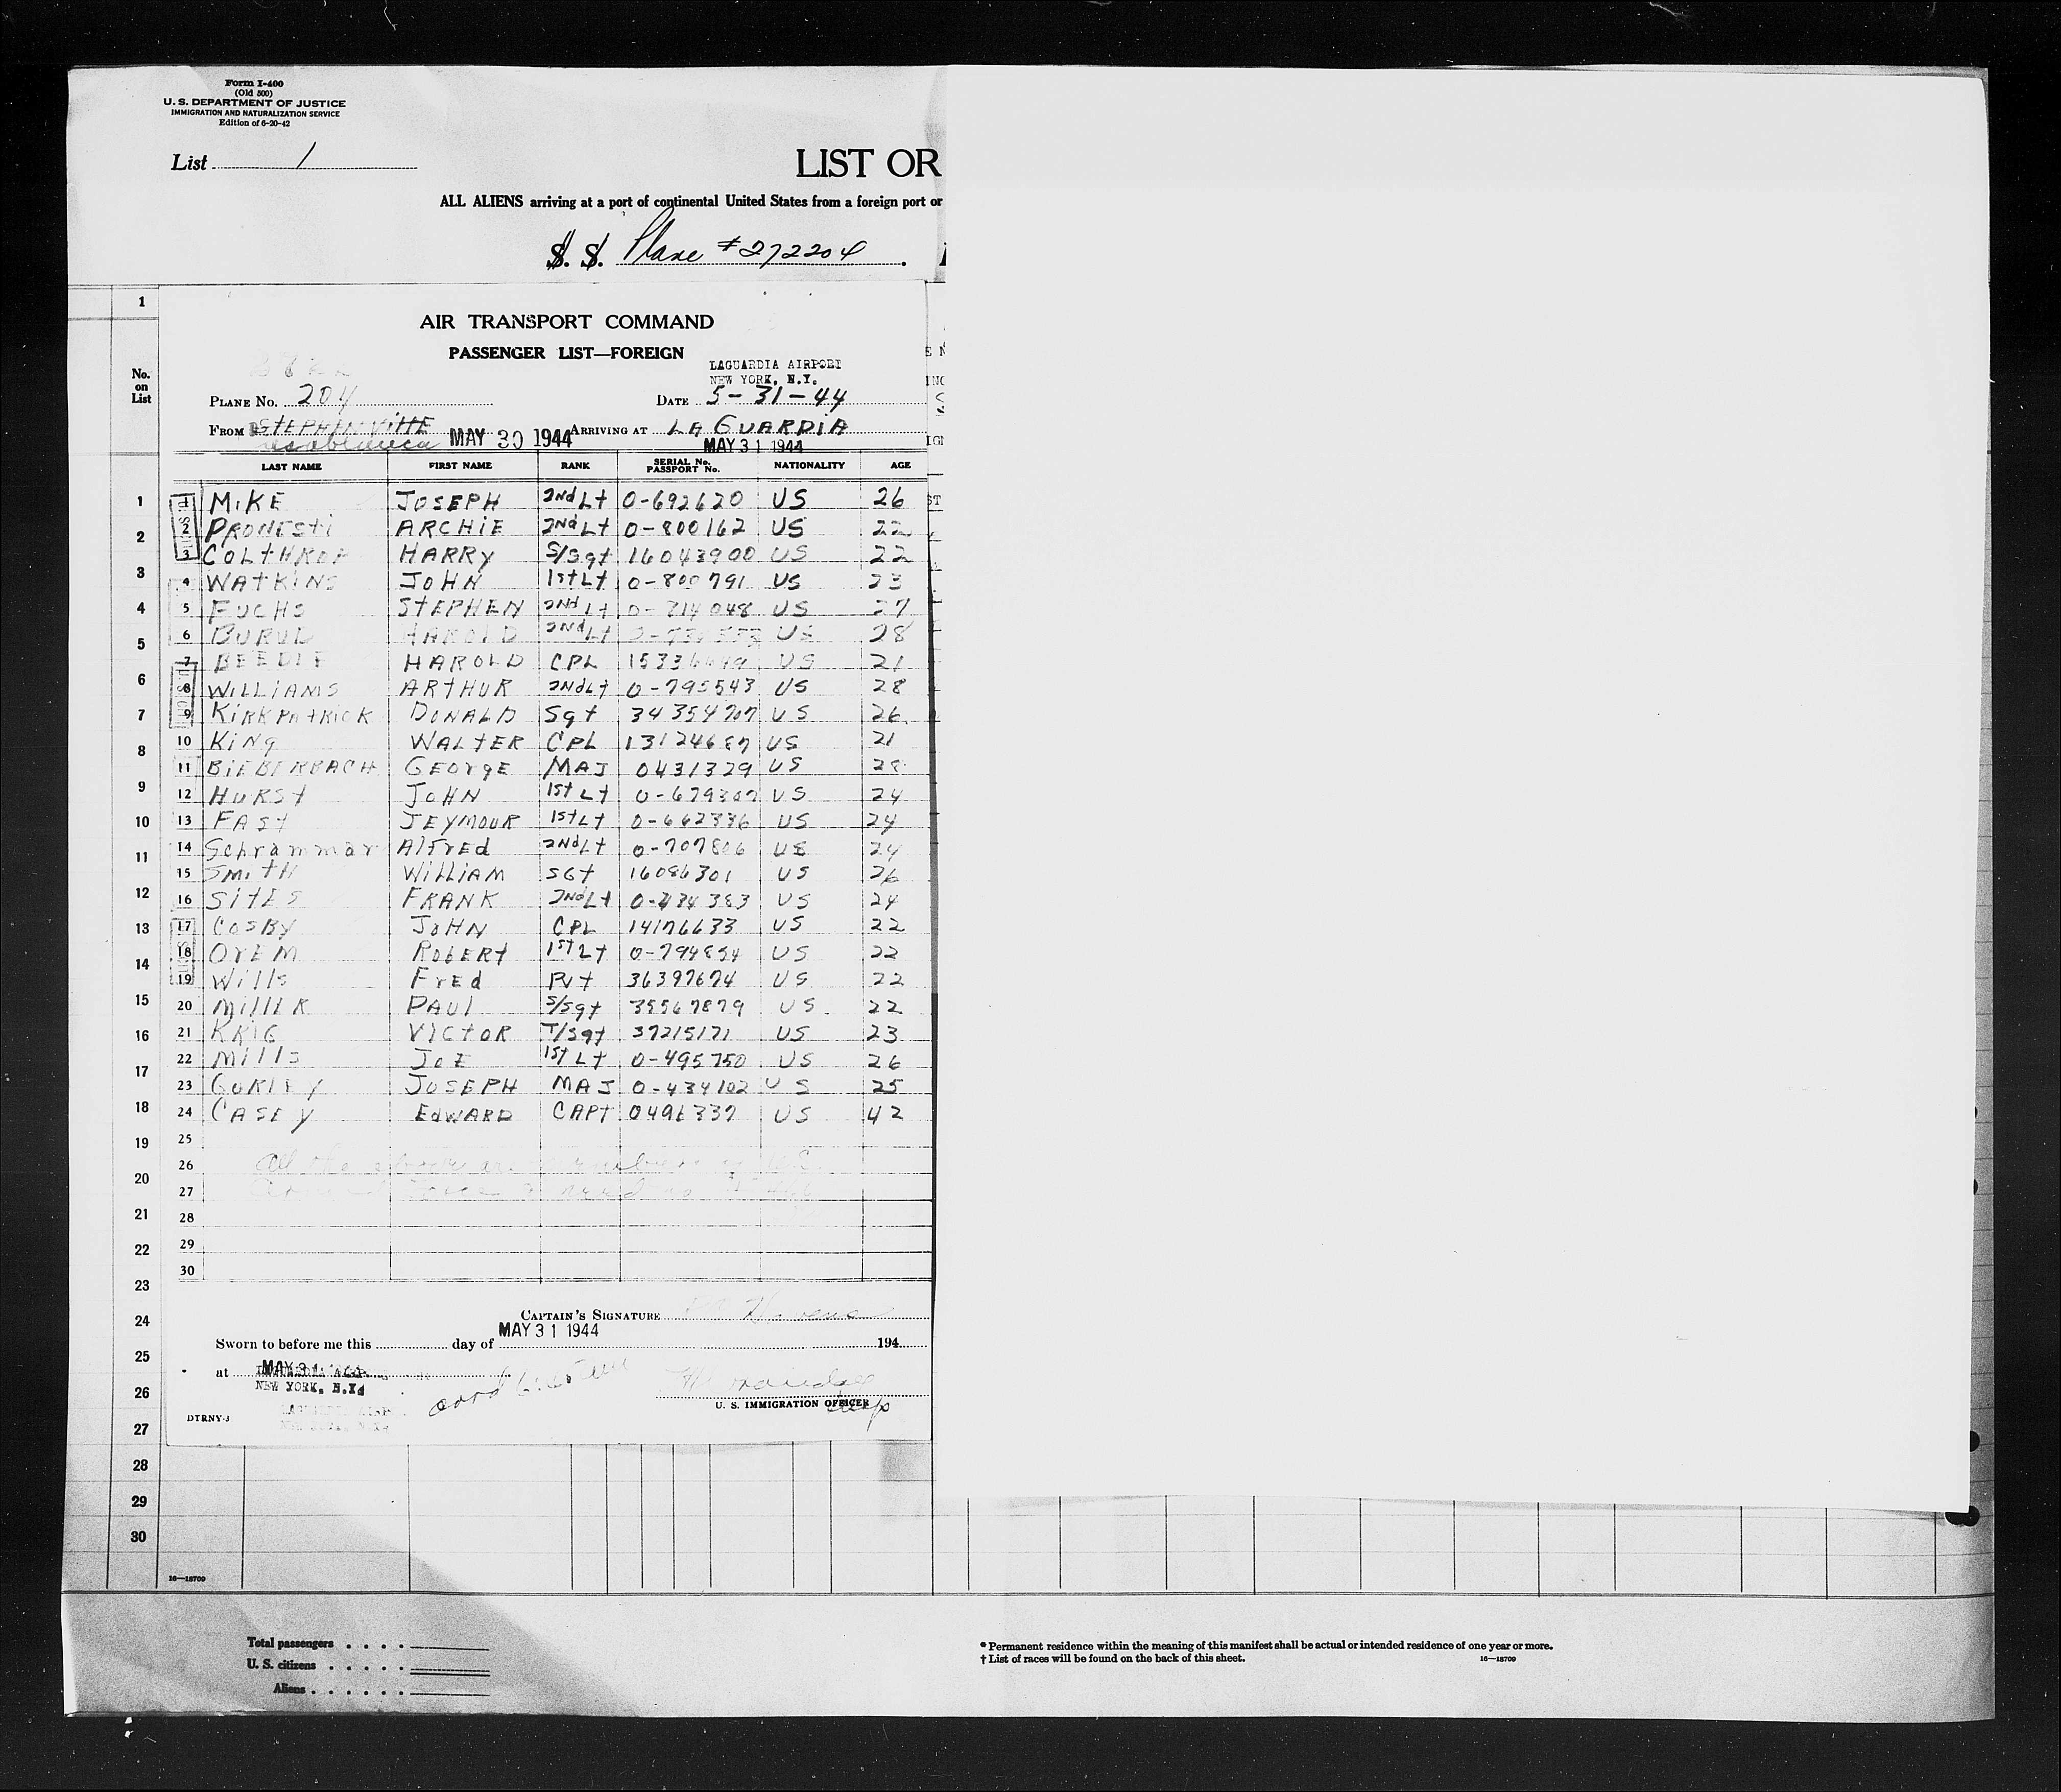 Form I-400
(Old 500)
U. S. DEPARTMENT OF JUSTICE
IMMIGRATION AND NATURALIZATION SERVICE
Edition of 6-20-42
List 1
LIST OR
ALL ALIENS arriving at a port of continental United States from a foreign port or
S. S. Plane #272204
AIR TRANSPORT COMMAND
PASSENGER LIST—FOREIGN
LAGUARDIA AIRPORT
NEW YORK, N.Y.
PLANE No. 204 DATE 5-31-44
FROM STEPHENVILLE MAY 30 1944 ARRIVING AT LA GUARDIA
Casablanca MAY 31 1944
No. on List
LAST NAME FIRST NAME RANK SERIAL No. PASSPORT No. NATIONALITY AGE
1 MIKE JOSEPH 2nd Lt 0-692620 US 26
2 PRONESTI ARCHIE 2nd Lt 0-800162 US 22
3 COLTHROP HARRY S/Sgt 16043900 US 22
4 WATKINS JOHN 1st Lt 0-800791 US 23
5 FUCHS STEPHEN 2nd Lt 0-814048 US 27
6 HAROLD 2nd Lt US 28
7 BEEDLE HAROLD CPL US 21
8 WILLIAMS ARTHUR 2nd Lt 0-795543 US 28
9 KIRKPATRICK DONALD Sgt 34354707 US 26
10 KING WALTER CPL 13124687 US 21
11 BIEBERBACH GEORGE MAJ 0431329 US 28
12 HURST JOHN 1st Lt 0-679307 US 24
13 FAST JEYMOUR 1st Lt 0-662336 US 24
14 Schrammar Alfred 2nd Lt 0-707806 US 24
15 SMITH WILLIAM SGT 16086301 US 26
16 SITES FRANK 2nd Lt 0-434383 US 24
17 COSBY JOHN CPL 14176633 US 22
18 OREM ROBERT 1st Lt 0-794854 US 22
19 Wills FrEd Pvt 36397674 US 22
20 MILLER PAUL S/Sgt 35567879 US 22
21 KRIG VICTOR T/Sgt 37215171 US 23
22 Mills JOE 1st Lt 0-495750 US 26
23 GURLEY JOSEPH MAJ 0-434102 US 25
24 CASEY EDWARD CAPT 0496337 US 42
25
26 All the above are members of U.S.
27
28
29
30
CAPTAIN'S SIGNATURE
MAY 31 1944
Sworn to before me this day of 194
at MAY 31
NEW YORK, N.Y.
U. S. IMMIGRATION OFFICER
DTRNY-3
1
2
3
4
5
6
7
8
9
10
11
12
13
14
15
16
17
18
19
20
21
22
23
24
25
26
27
28
29
30
16—18709
Total passengers
U. S. citizens
Aliens
* Permanent residence within the meaning of this manifest shall be actual or intended residence of one year or more.
† List of races will be found on the back of this sheet. 16—18709